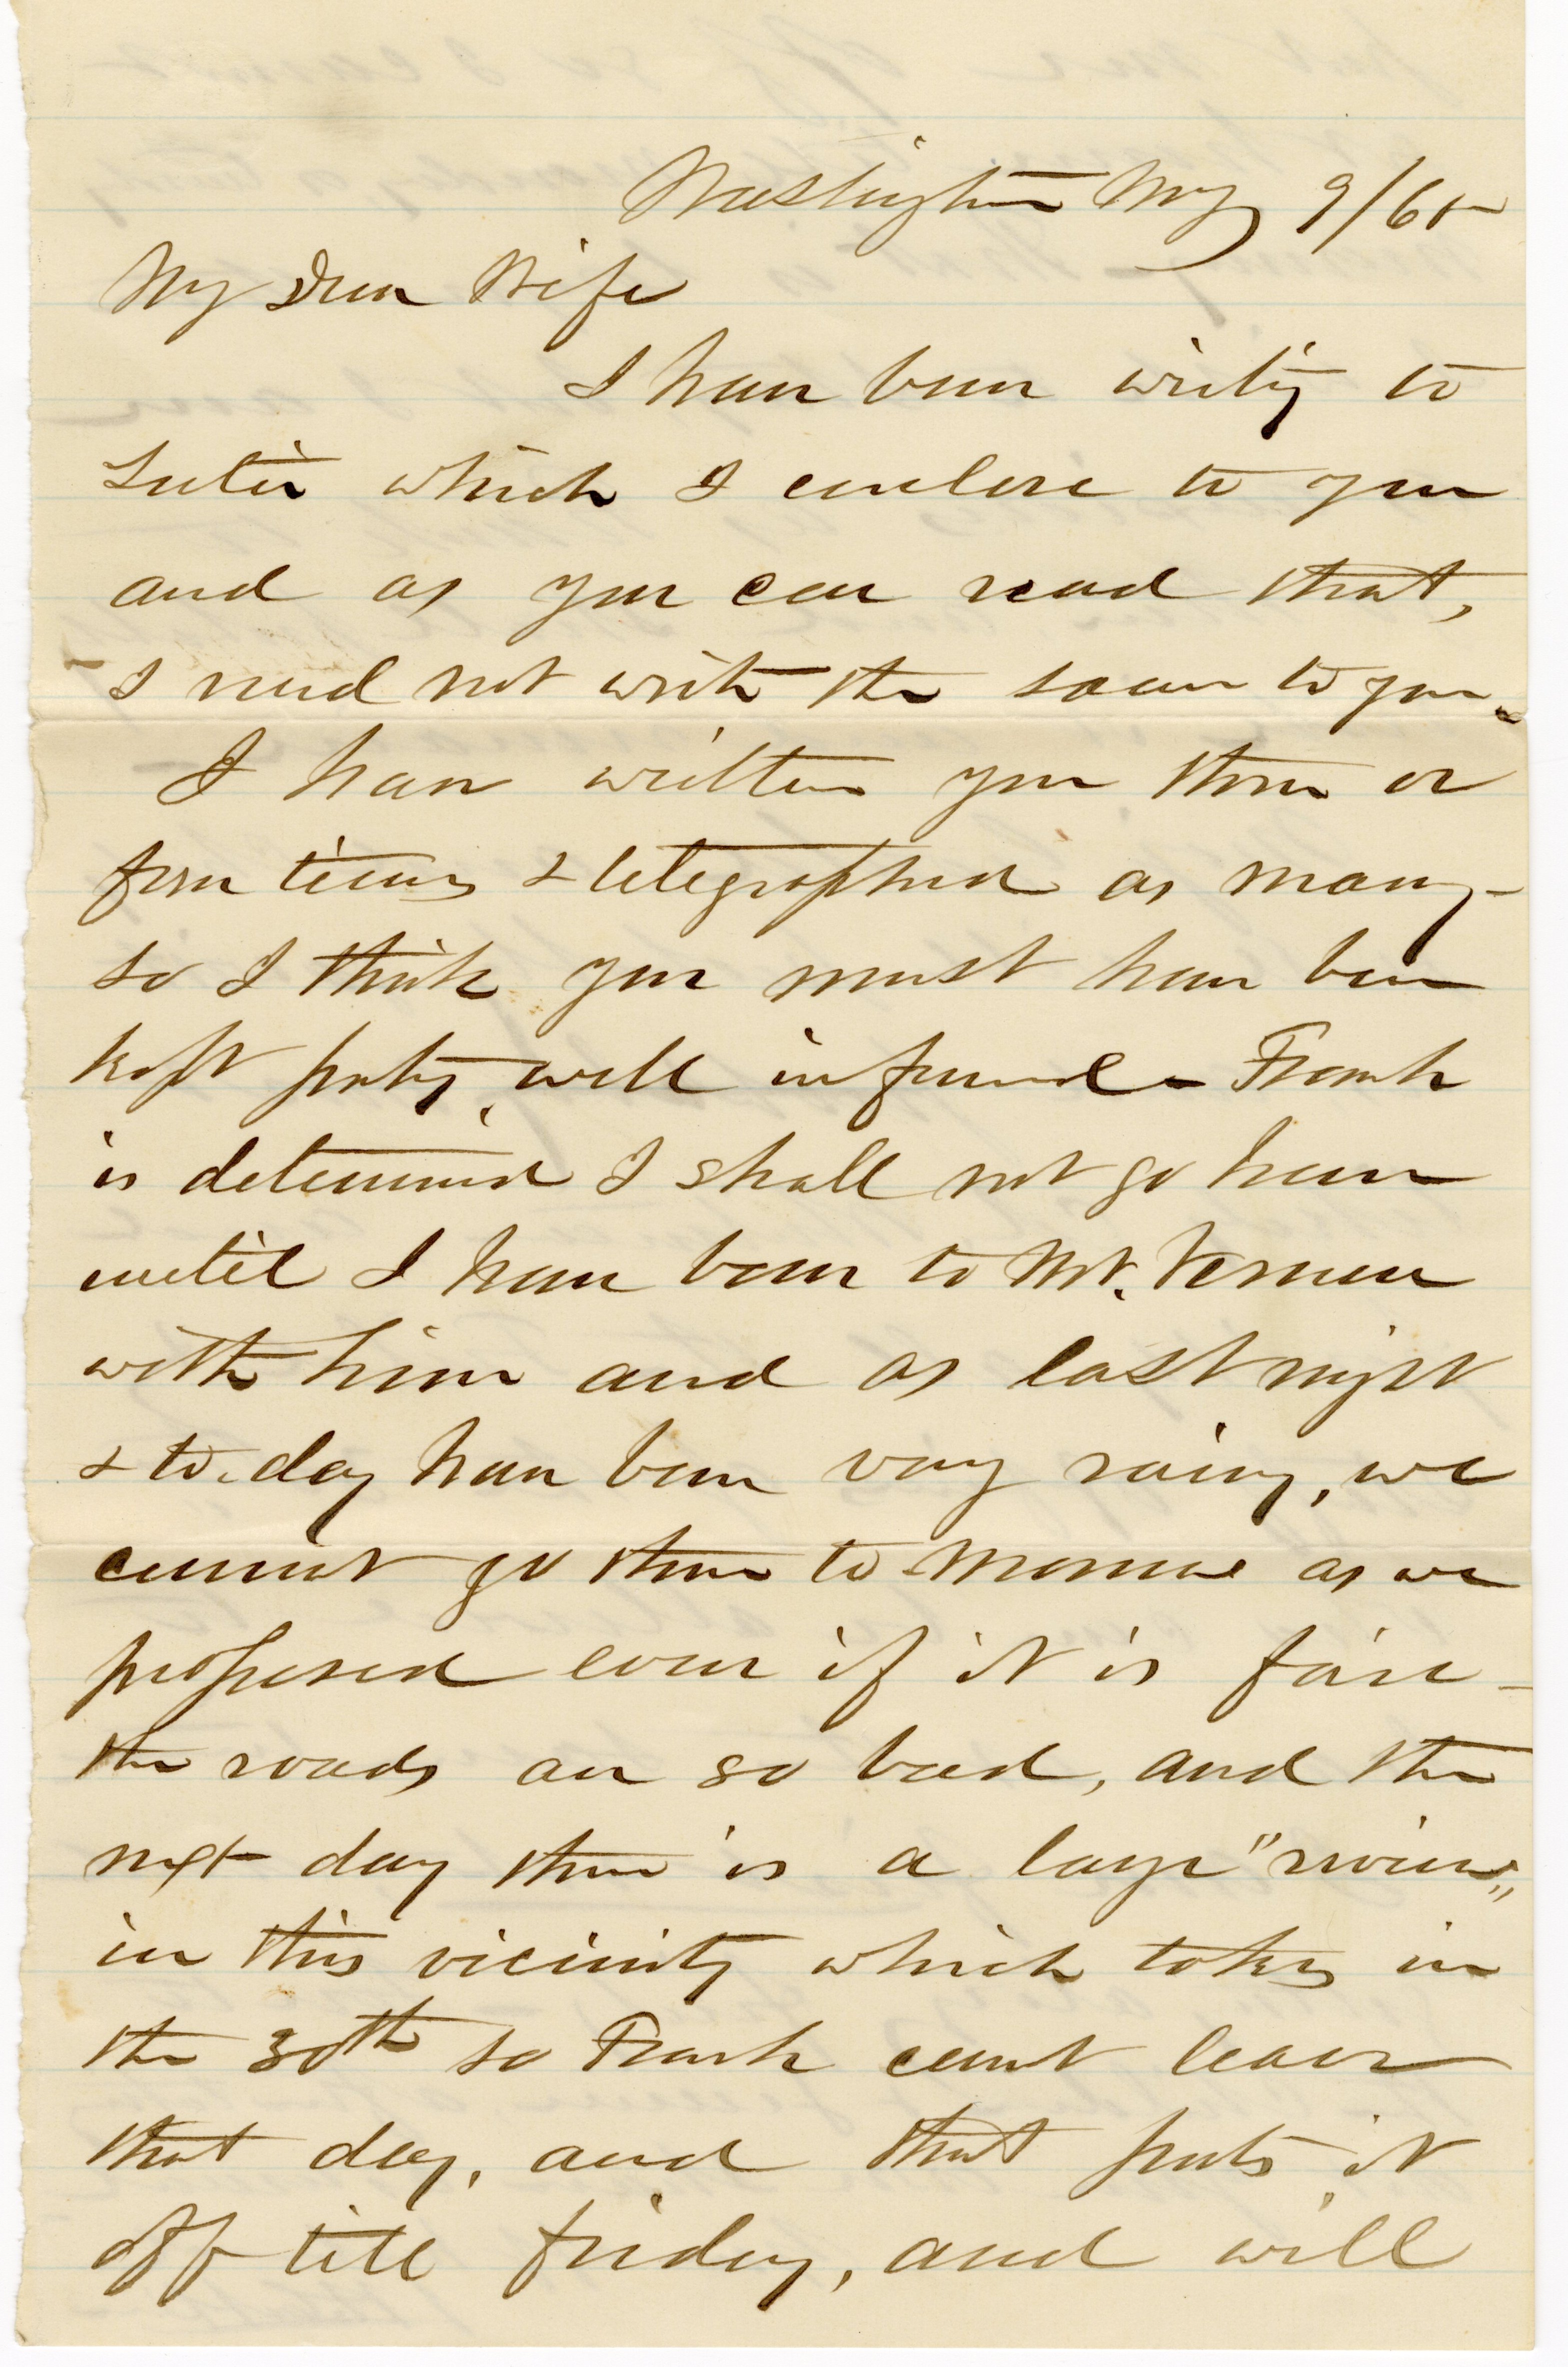 Washington May 9/65
My Dear Wife
I have been writing to
which I enclose to you
and as you can read that,
I need not write the same to you.
I have written you three or
four times & telegraphed as many -
so I think you must have been
kept pretty well informed - Frank
is determined I shall not go home
until I have been to Mt. Vernon
with him and as last night
& to-day have been very rainy, we
cannot go there to-morrow as we
proposed even if it is fair -
the roads are so bad, and the
next day there is a large "review"
in this vicinity which takes in
the 30th so Frank cant leave
that day, and that puts it
off till friday, and will